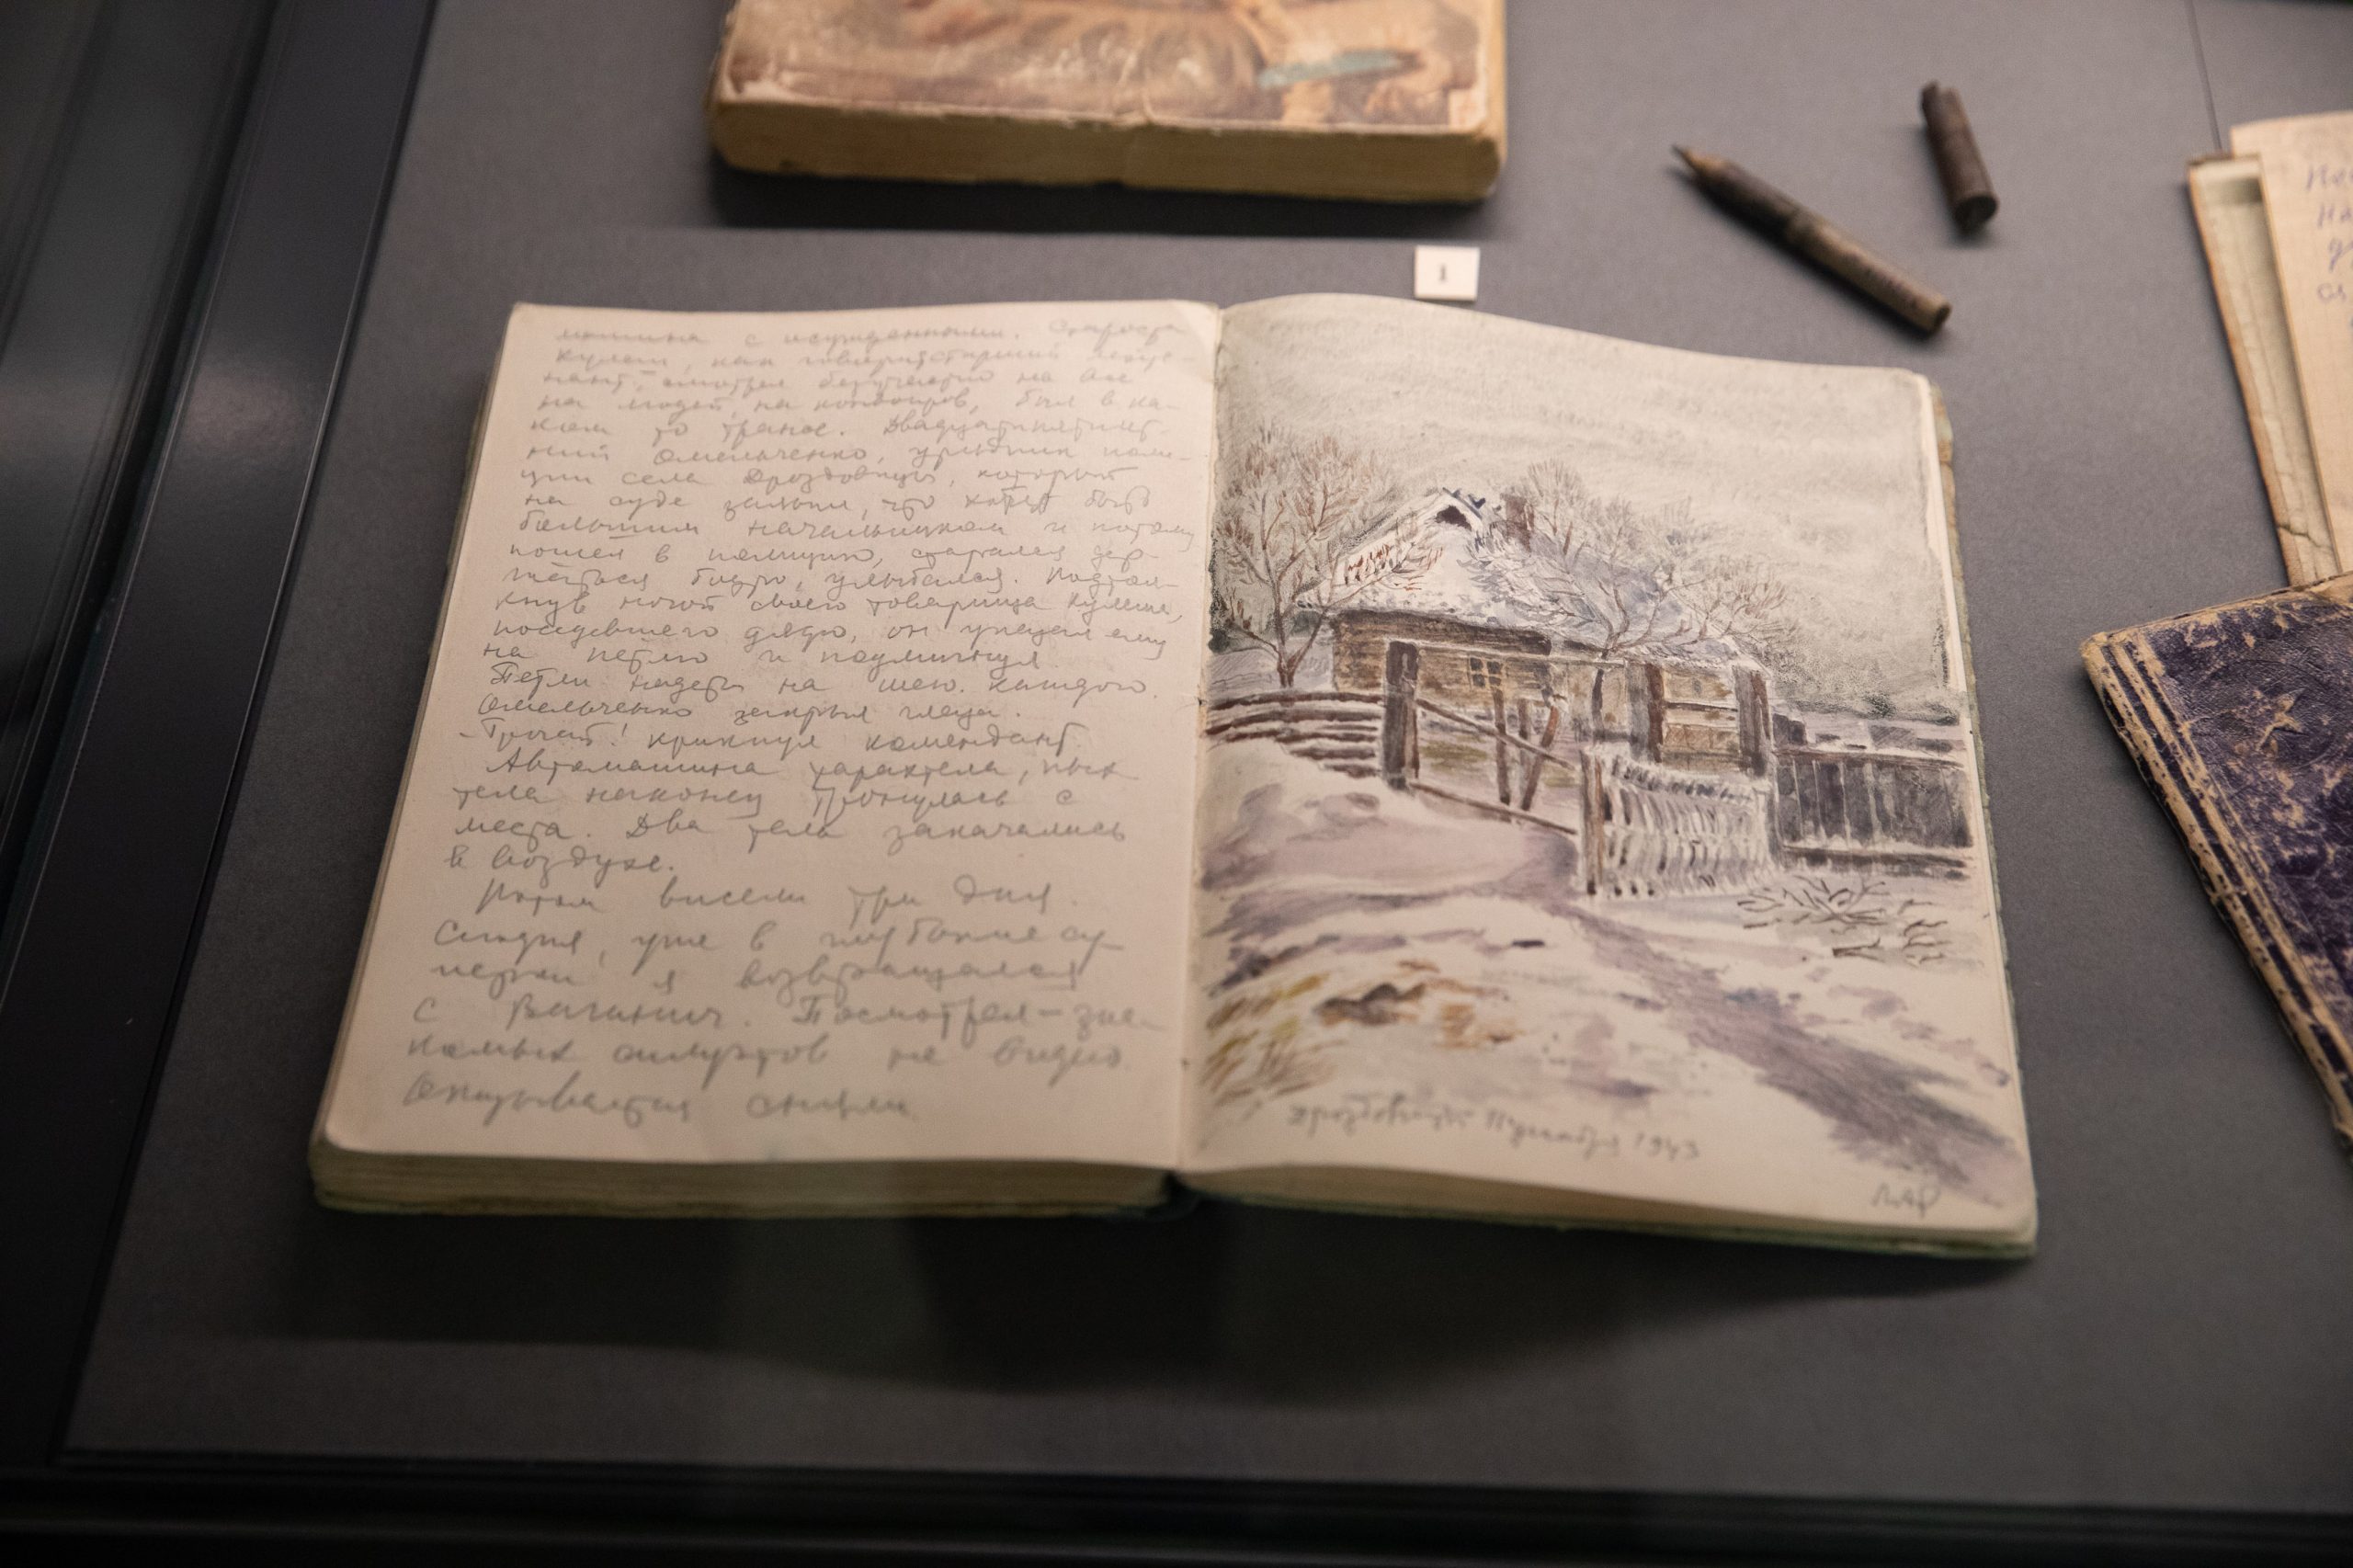 1
машина с осужденными. Староста
Кулеш, как говорил старший лейте-
нант, смотрел безучастно на все
на людей, на конвоиров, был в ка-
ком то трансе. Двадцатипятилет-
ний Омельченко, урядник поли-
ции села Дроздовицы, который
на суде заявил, что хотел быть
большим начальником и потому
пошел в полицию, старался дер-
жаться бодро, улыбался. Подтол-
кнув ногой своего товарища Кулеша,
поседевшего дядю, он указал ему
на петлю и подмигнул.
Петли надеты на шею каждого.
Омельченко закрыл глаза.
- Трогай! крикнул комендант.
Автомашина тарахтела, пых-
тела наконец тронулась с
места. Два тела закачались
в воздухе.
Потом висели три дня.
Сегодня, уже в глубокие су-
мерки я возвращался
с Вагинич. Посмотрел - зна-
комых силуэтов не видно.
Оказывается сняли
Дроздовицы 11 декабря 1943